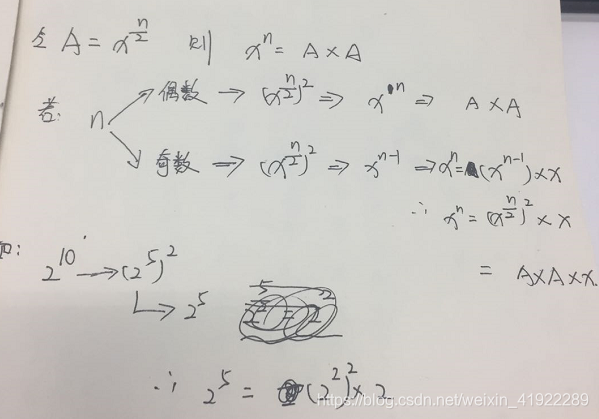 令 A = x^{n/2} 则 x^n = A × A
若: n
偶数 → (x^{n/2})^2 ⇒ x^n ⇒ A × A
奇数 ⇒ (x^{n/2})^2 ⇒ x^{n-1} ⇒ x^n = (x^{n-1}) × x
∴ x^n = (x^{n/2})^2 × x
= A × A × x.
如: 2^{10} → (2^5)^2
↳ 2^5
∴ 2^5 = (2^2)^2 × 2
https://blog.csdn.net/weixin_41922289